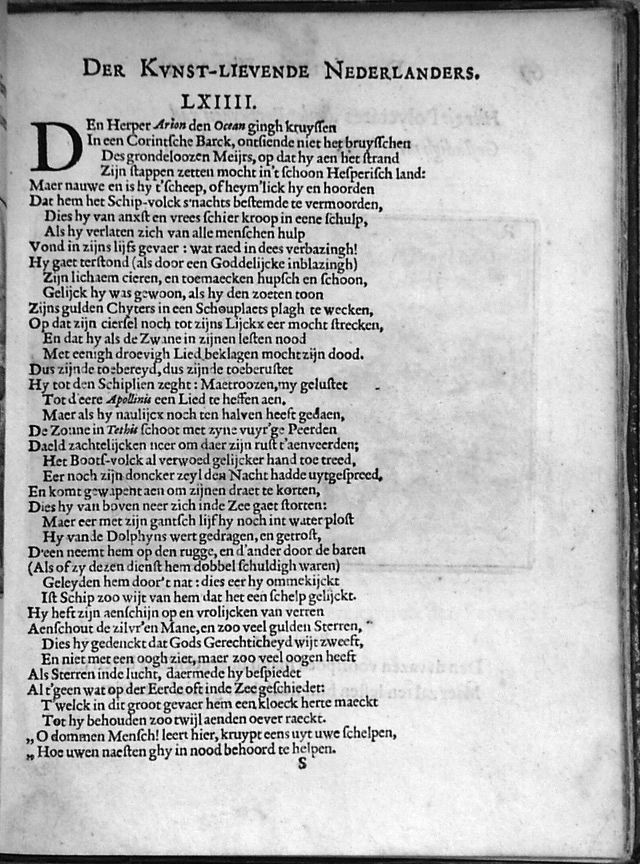 DER KVNST-LIEVENDE NEDERLANDERS.
LXIIII.
DEn Herper Arion den Ocean gingh kruyssen
In een Corintsche Barck, ontsiende niet het bruysschen
Des grondeloozen Meijrs, op dat hy aen het strand
Zijn stappen zetten mocht in't schoon Hesperisch land:
Maer nauwe en is hy t'scheep, of heym'lick hy en hoorden
Dat hem het Schip-volck s'nachts bestemde te vermoorden,
Dies hy van anxst en vrees schier kroop in eene schulp,
Als hy verlaten zich van alle menschen hulp
Vond in zijns lijfs gevaer: wat raed in dees verbazingh!
Hy gaet terstond (als door een Goddelijcke inblazingh)
Zijn lichaem cieren, en toemaecken hupsch en schoon,
Gelijck hy was gewoon, als hy den zoeten toon
Zijns gulden Chyters in een Schouplaets plagh te wecken,
Op dat zijn ciersel noch tot zijns Lijckx eer mocht strecken,
En dat hy als de Zwane in zijnen lesten nood
Met eenigh droevigh Lied beklagen mocht zijn dood.
Dus zijnde toebereyd, dus zijnde toeberustet
Hy tot den Schiplien zeght: Maetroozen, my gelustet
Tot d'eere Apollinis een Lied te heffen aen.
Maer als hy naulijcx noch ten halven heeft gedaen,
De Zonne in Tethis schoot met zyne vuyr'ge Peerden
Daeld zachtelijcken neer om daer zijn rust t'aenveerden;
Het Boots-volck al verwoed gelijcker hand toe treed,
Eer noch zijn doncker zeyl den Nacht hadde uytgespreed,
En komt gewapent aen om zijnen draet te korten,
Dies hy van boven neer zich inde Zee gaet storten:
Maer eer met zijn gantsch lijf hy noch int water plost
Hy van de Dolphyns wert gedragen, en getrost,
D'een neemt hem op den rugge, en d'ander door de baren
(Als of zy dezen dienst hem dobbel schuldigh waren)
Geleyden hem door't nat: dies eer hy ommekijckt
Ist Schip zoo wijt van hem dat het een schelp gelijckt.
Hy heft zijn aenschijn op en vrolijcken van verren
Aenschout de zilvr'en Mane, en zoo veel gulden Sterren,
Dies hy gedenckt dat Gods Gerechticheyd wijt zweeft,
En niet met een oogh ziet, maer zoo veel oogen heeft
Als Sterren inde lucht, daermede hy bespiedet
Al t'geen wat op der Eerde oft inde Zee geschiedet:
T'welck in dit groot gevaer hem een kloeck herte maeckt
Tot hy behouden zoo twijl aenden oever raeckt.
„O dommen Mensch! leert hier, kruypt eens uyt uwe schelpen,
„Hoe uwen naesten ghy in nood behoord te helpen.
S